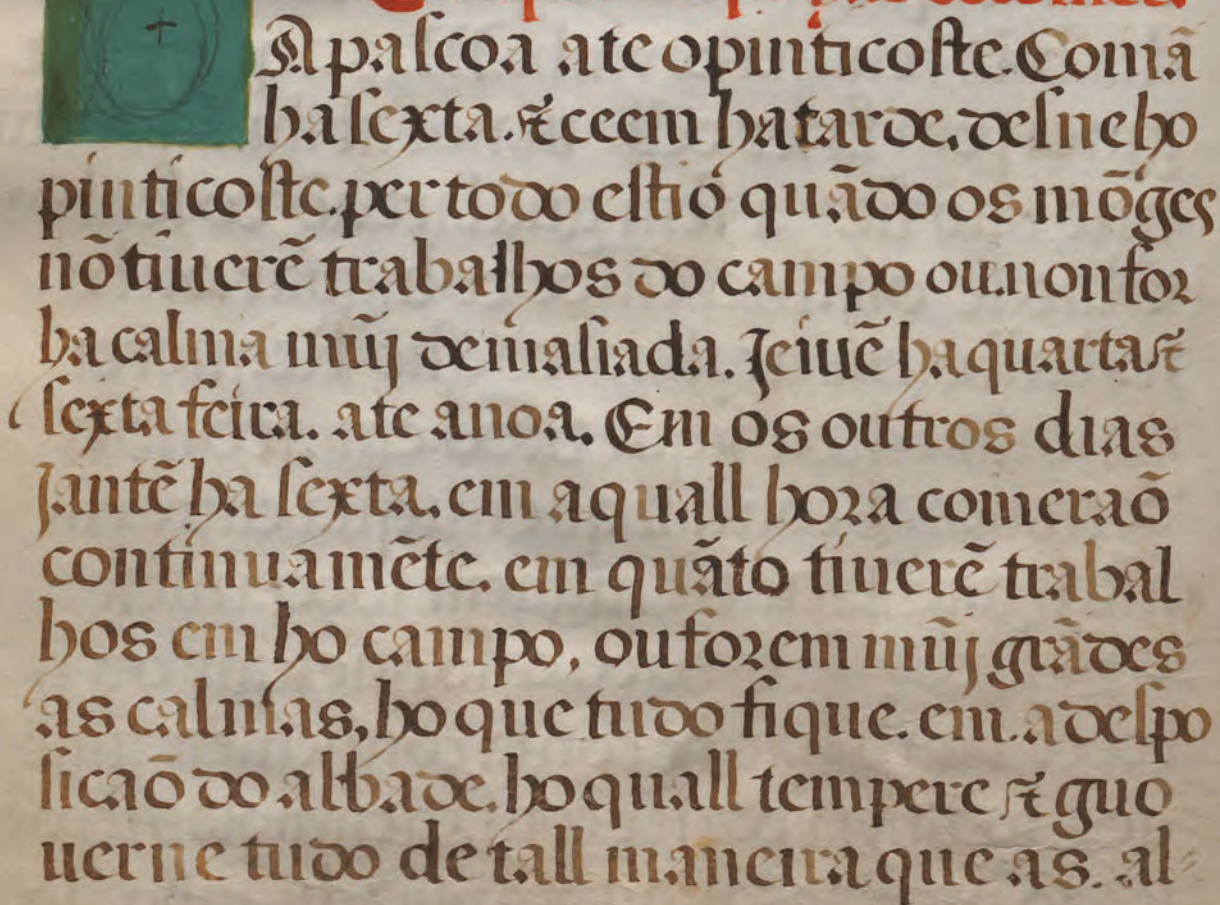 A pascoa ate o pinticoste. Comã
ha sexta. & ceem ha tarde, desne ho
pinticoste. per todo estio quãdo os mõges
nõ tiuerẽ trabalhos do campo ou non for
ha calma mũj demasiada. Jeiuẽ ha quarta &
sexta feira. ate a noa. Em os outros dias
Jantẽ ha sexta. em a quall hora comeraõ
continuamẽte. em quãto tiuerẽ trabal
hos em ho campo, ou forem mũj grãdes
as calmas, ho que tudo fique. em. a despo
sicaõ do abbade. ho quall tempere & guo
uerne tudo de tall maneira que as. al-